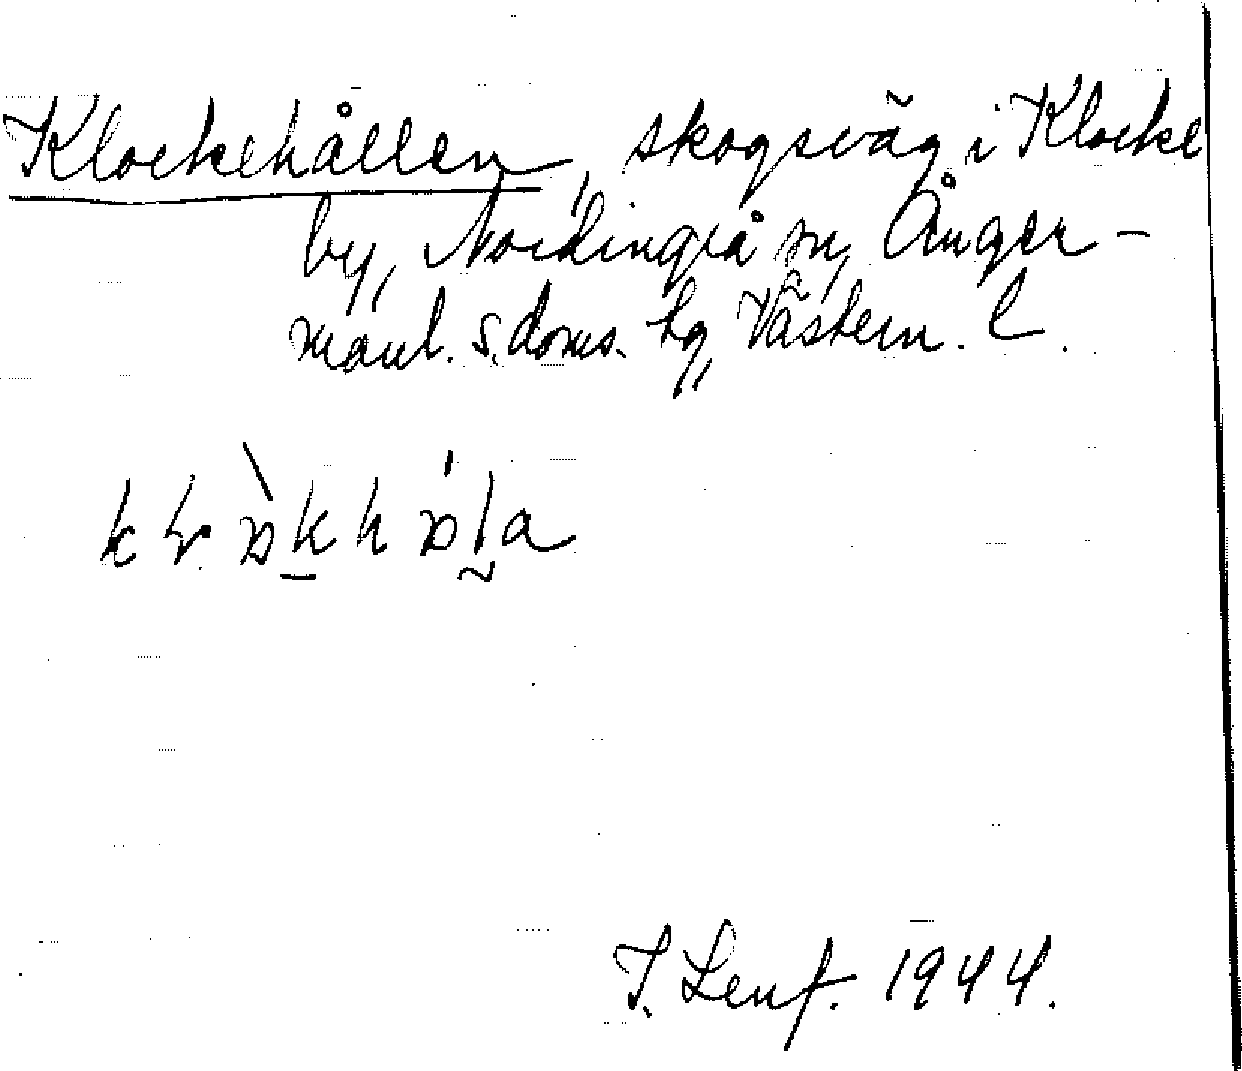 Klockehållen, skogsväg i Klocke
by, Nordingrå sn, Ånger-
manl. s. doms. hg, Västern. l.
J. Lenf. 1944.